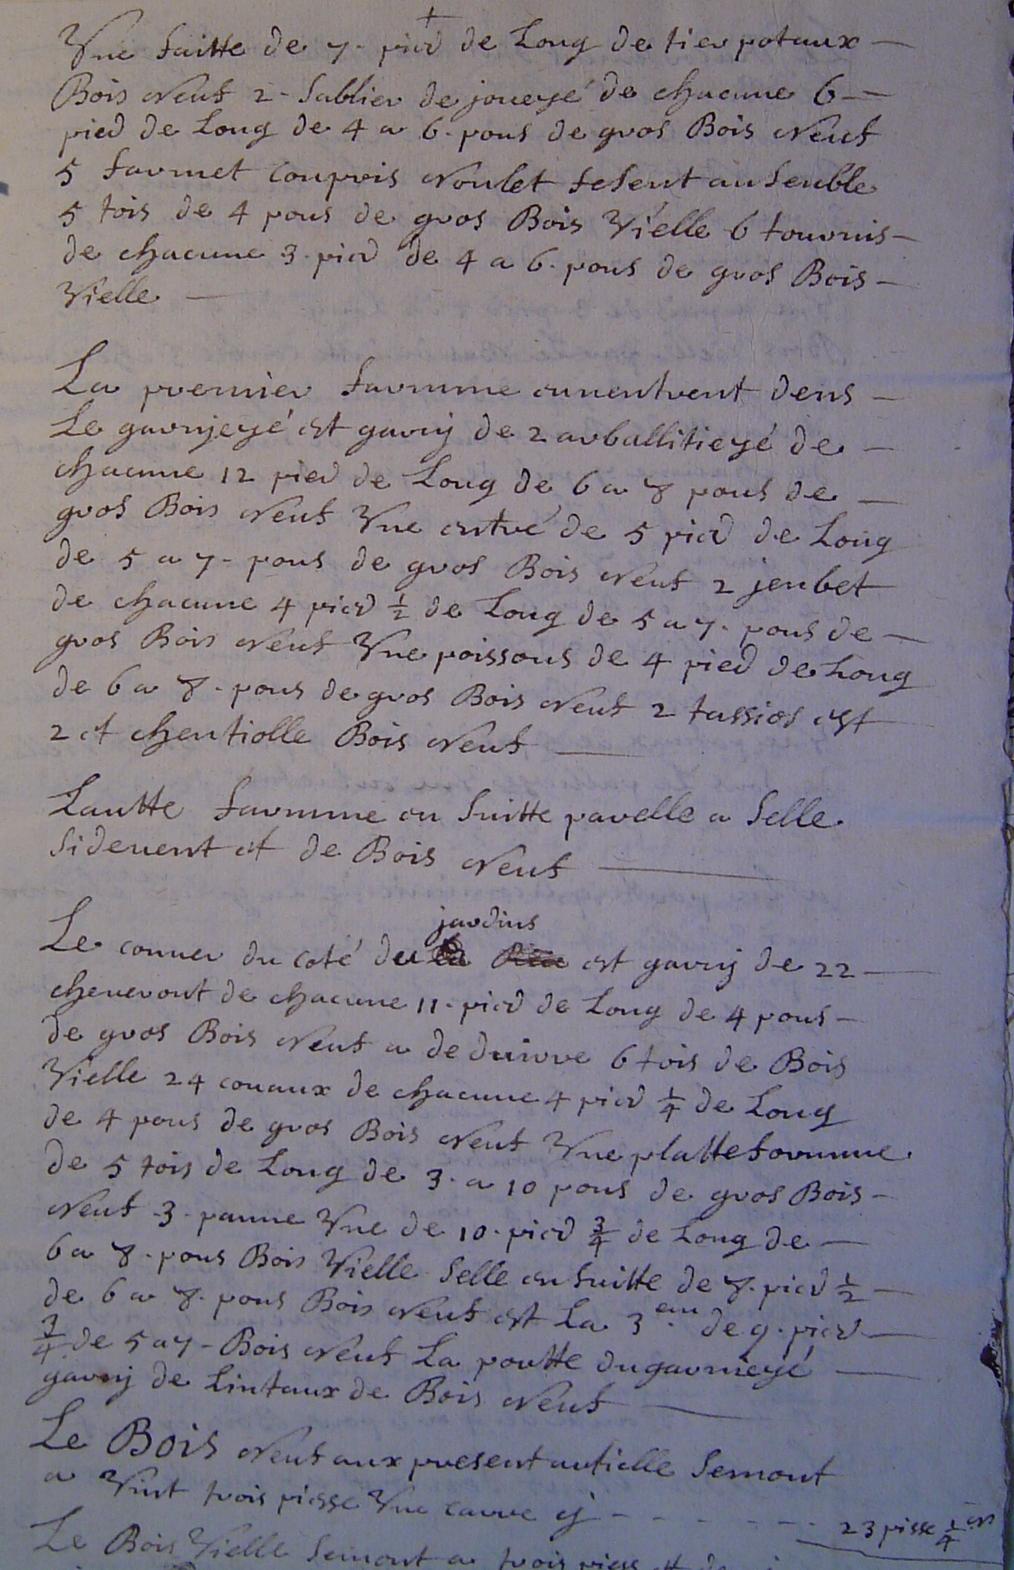 Une faitte de 7. pied de Long de tier potaux —
Bois neuf 2 - Sablier de joueyé de chacune 6 —
pied de Long de 4 a 6. pous de gros Bois neuf
5 farmet conpris noulet fesent ansenble
5 tois de 4 pous de gros Bois Vielle 6 tournis —
de chacune 3. pied de 4 a 6. pous de gros Bois —
Vielle —
La premier farmme ennentrent dens —
Le garnjeyé est garnj de 2 arballitieyé de —
chacune 12 pied de Long de 6 a 8 pous de —
gros Bois neuf Une entré de 5 pied de Long
de 5 a 7 - pous de gros Bois neuf 2 jenbet
de chacune 4 pied ½ de Long de 5 a 7. pous de —
gros Bois neuf Une poissons de 4 pied de Long
de 6 a 8 - pous de gros Bois neuf 2 tassios est
2 et chentiolle Bois neuf —
Lautte farmme en Suitte parelle a Selle
Sidenent et de Bois neuf —
jardins
Le conner du coté du est garnj de 22 —
cheneront de chacune 11 - pied de Long de 4 pous —
de gros Bois neuf a deduirre 6 tois de Bois
Vielle 24 conaux de chacune 4 pied ¼ de Long
de 4 pous de gros Bois neuf Une platteformme
de 5 tois de Long de 3. a 10 pous de gros Bois —
neuf 3 - panne Une de 10 - pied ¾ de Long de —
6 a 8 - pous Bois Vielle Selle en Suitte de 8. pied ½ —
de 6 a 8. pous Bois neuf est La 3 em de 9. pied —
¾ de 5 a 7 - Bois neuf La poutte du garnieyé —
garnj de Lintaux de Bois neuf —
Le Bois neuf aux present artielle Semont
a Vint trois piesse Une carre cj - - - - - - - 23 pisse ¼
Le Bois Vielle Semont a trois